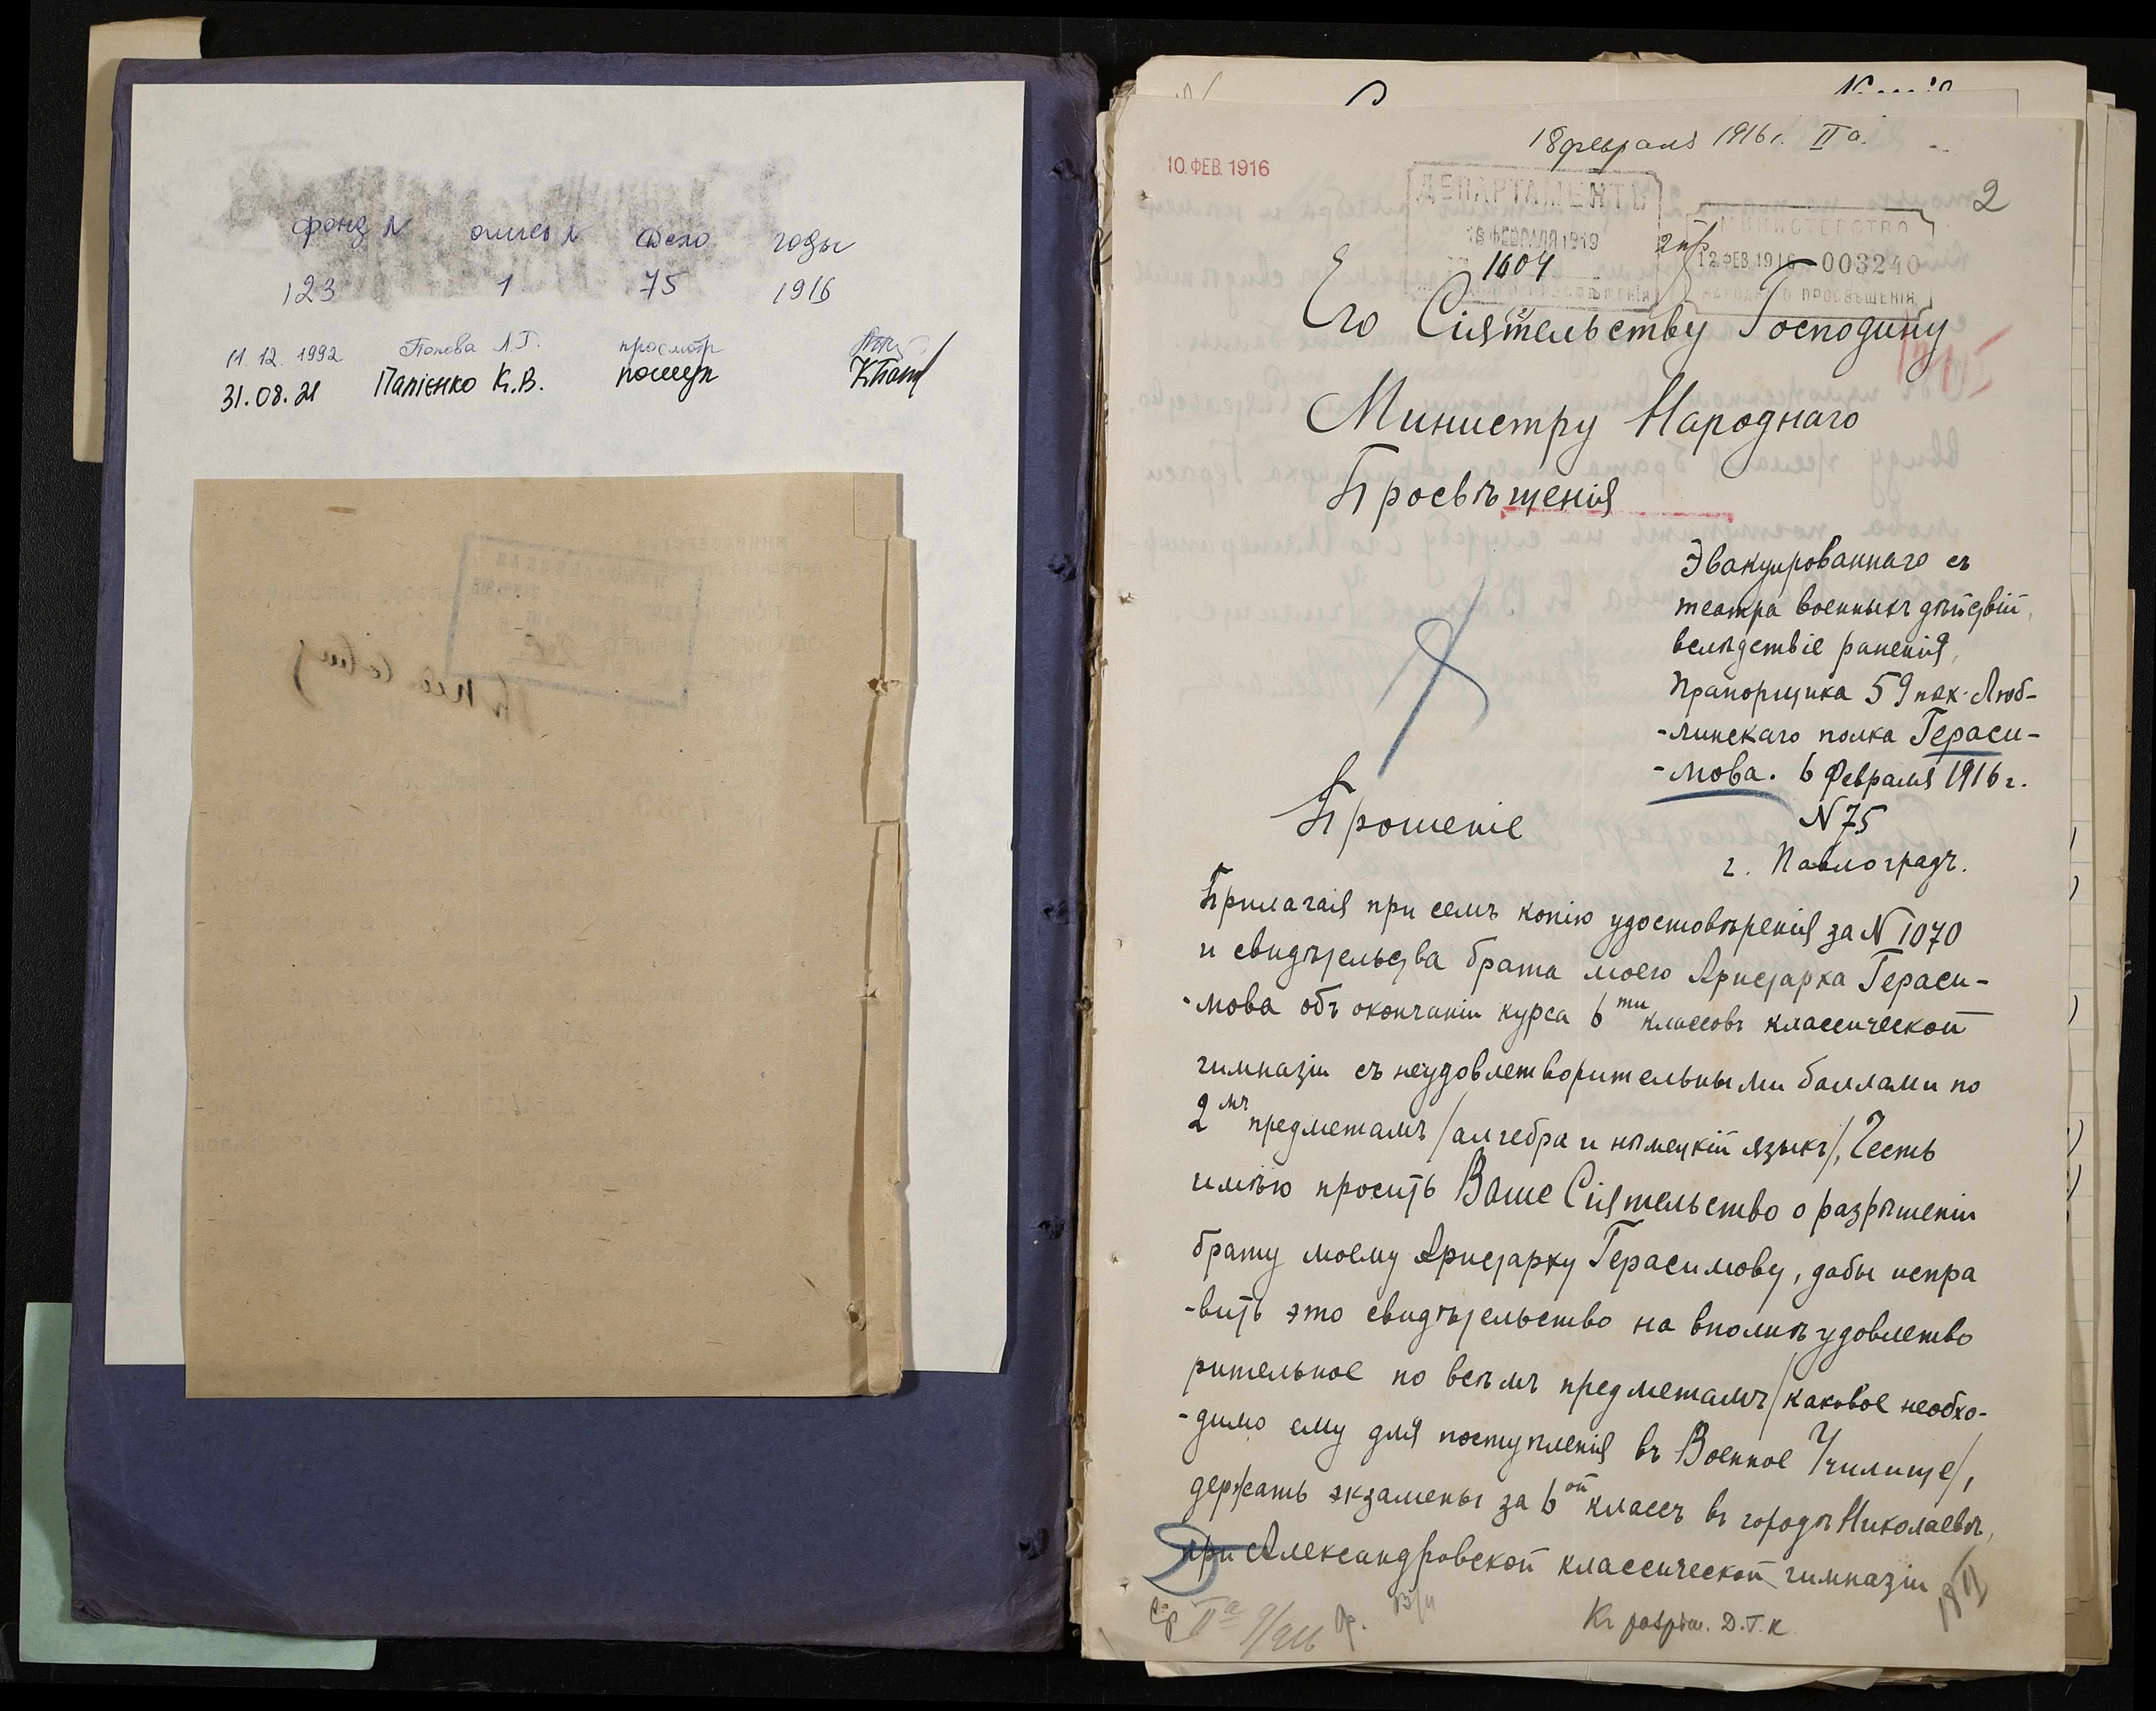 фонд N опись N дело годы
123 1 75 1916
11.12.1992 Попова Л.Г. просмотр
31.08.21 Папієнко К.В. пошук
18 февраля 1916 г. II а.
10. ФЕВ. 1916
2
ДЕПАРТАМЕНТЪ
МИНИСТЕРСТВО
1604
12 ФЕВ. 1916 - 003240
НАРОДНАГО ПРОСВѢЩЕНІЯ
Его Сіятельству Господину
Министру Народнаго
Просвѣщенія
Эвакуированнаго съ
театра военныхъ дѣйствій,
вслѣдствіе раненія,
Прапорщика 59 пех. Люб-
-линскаго полка Гераси-
-мова. 6 Февраля 1916 г.
N 75
г. Павлоградъ.
Прошеніе
Прилагая при семъ копію удостовѣренія за N 1070
и свидѣтельства брата моего Аристарка Гераси-
-мова объ окончаніи курса 6 ти классовъ классической
гимназіи съ неудовлетворительными баллами по
2 мъ предметамъ /алгебра и нѣмецкій языкъ/, Честь
имѣю просить Ваше Сіятельство о разрѣшеніи
брату моему Аристарку Герасимову, дабы испра
-вить это свидѣтельство на вполнѣ удовлетво
рительное по всѣмъ предметамъ /каковое необхо-
-димо ему для поступленія въ Военное Училище/,
держать экзамены за 6 ой классъ въ городѣ Николаевѣ,
при Александровской классической гимназіи
Къ разрѣш. Д.Т.К.